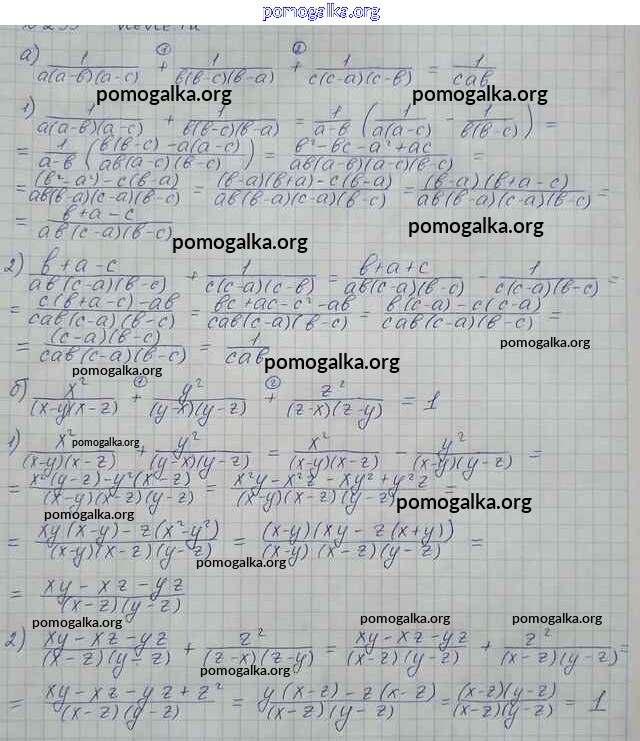 pomogalka.org
а) 1/(a(a-b)(a-c)) + ① 1/(b(b-c)(b-a)) + ② 1/(c(c-a)(c-b)) = 1/(cab)
pomogalka.org pomogalka.org
1) 1/(a(a-b)(a-c)) + 1/(b(b-c)(b-a)) = 1/(a-b) (1/(a(a-c)) - 1/(b(b-c))) =
= 1/(a-b) ((b(b-c)-a(a-c))/(ab(a-c)(b-c))) = (b²-bc-a²+ac)/(ab(a-b)(a-c)(b-c)) =
= ((b²-a²)-c(b-a))/(ab(b-a)(c-a)(b-c)) = ((b-a)(b+a)-c(b-a))/(ab(b-a)(c-a)(b-c)) = ((b-a)(b+a-c))/(ab(b-a)(c-a)(b-c)) =
= (b+a-c)/(ab(c-a)(b-c))
pomogalka.org pomogalka.org
2) (b+a-c)/(ab(c-a)(b-c)) + 1/(c(c-a)(c-b)) = (b+a+c)/(ab(c-a)(b-c)) - 1/(c(c-a)(b-c)) =
= (c(b+a-c)-ab)/(cab(c-a)(b-c)) = (bc+ac-c²-ab)/(cab(c-a)(b-c)) = (b(c-a)-c(c-a))/(cab(c-a)(b-c)) =
= ((c-a)(b-c))/(cab(c-a)(b-c)) = 1/(cab)
pomogalka.org
pomogalka.org
pomogalka.org
б) x²/((x-y)(x-z)) + ① y²/((y-x)(y-z)) + ② z²/((z-x)(z-y)) = 1
pomogalka.org
1) x²/((x-y)(x-z)) + y²/((y-x)(y-z)) = x²/((x-y)(x-z)) - y²/((x-y)(y-z)) =
= (x²(y-z)-y²(x-z))/((x-y)(x-z)(y-z)) = (x²y-x²z-xy²+y²z)/((x-y)(x-z)(y-z)) =
pomogalka.org
pomogalka.org
= (xy(x-y)-z(x²-y²))/((x-y)(x-z)(y-z)) = ((x-y)(xy-z(x+y)))/((x-y)(x-z)(y-z)) =
pomogalka.org
= (xy-xz-yz)/((x-z)(y-z))
pomogalka.org pomogalka.org pomogalka.org
2) (xy-xz-yz)/((x-z)(y-z)) + z²/((z-x)(z-y)) = (xy-xz-yz)/((x-z)(y-z)) + z²/((x-z)(y-z)) =
= (xy-xz-yz+z²)/((x-z)(y-z)) = (y(x-z)-z(x-z))/((x-z)(y-z)) = ((x-z)(y-z))/((x-z)(y-z)) = 1
pomogalka.org